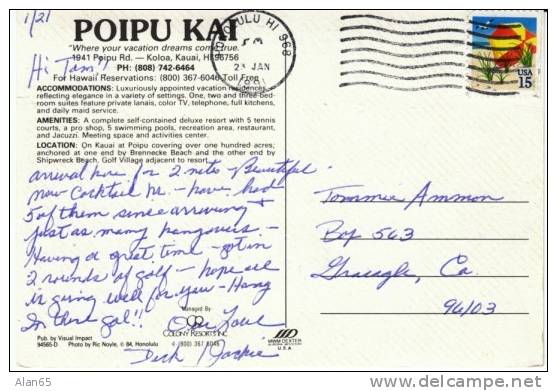 1/21
POIPU KAI
"Where your vacation dreams come true."
1941 Poipu Rd. — Koloa, Kauai, HI 96756
PH: (808) 742-6464
For Hawaii Reservations: (800) 367-6046 Toll Free
Hi Tom!!
ACCOMMODATIONS: Luxuriously appointed vacation residences
reflecting elegance in a variety of settings. One, two and three bed-
room suites feature private lanais, color TV, telephone, full kitchens,
and daily maid service.
AMENITIES: A complete self-contained deluxe resort with 5 tennis
courts, a pro shop, 5 swimming pools, recreation area, restaurant,
and Jacuzzi. Meeting space and activities center.
LOCATION: On Kauai at Poipu covering over one hundred acres;
anchored at one end by Brennecke Beach and the other end by
Shipwreck Beach, Golf Village adjacent to resort.
arrival here for 2 nites – Beautiful –
now Cocktail hr. – have had
5 of them since arriving +
just as many hangovers –
Having a great time – got in
2 rounds of golf – hope all
is going well for you – Hang
In there gal!! Our Love
Dick Jackie
Managed By
COLONY RESORTS INC
4-(800) 367 6046
Pub. by Visual Impact
94565-D Photo by Ric Noyle, © 84, Honolulu
MWM DEXTER
U.S.A.
HONOLULU HI 968
PM
23 JAN
USA
15
Tommie Ammon
Box 563
Graeagle, Ca.
96103
Alan65
http://www.delcampe.net